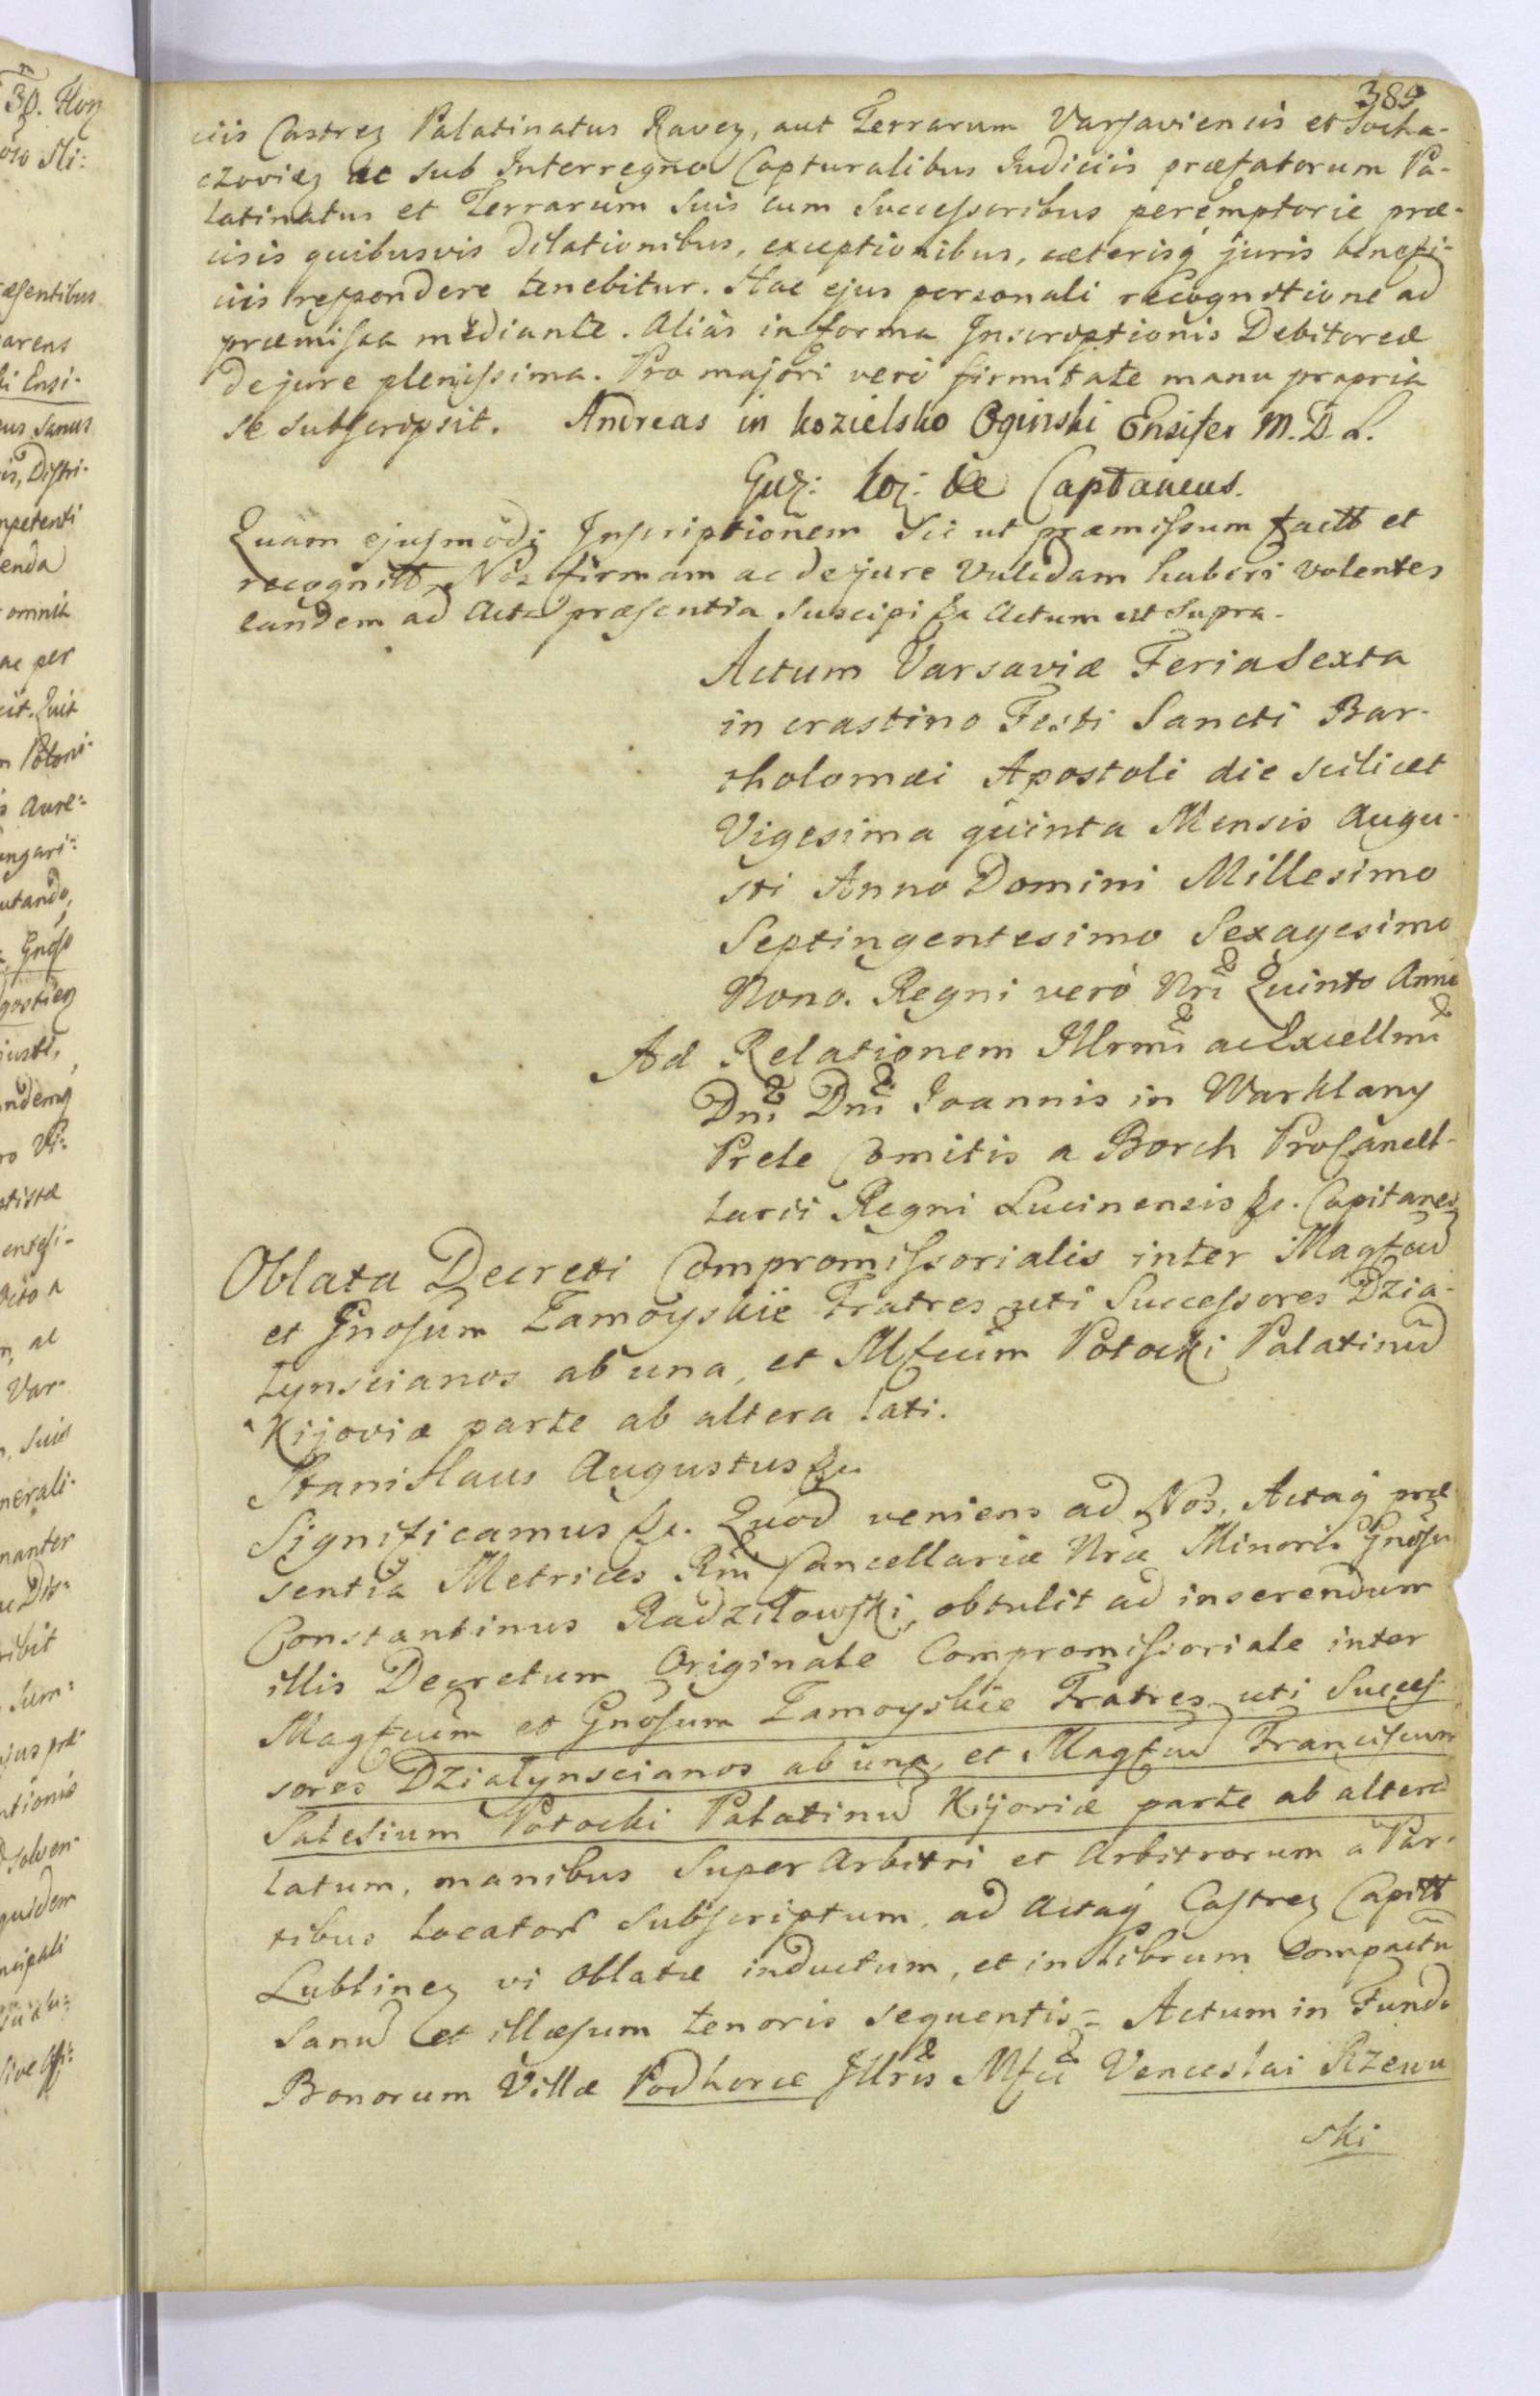 389
ciis Castreꝫ Palatinatus Raveꝫ, aut Terrarum Varsaviensis et Socha-
czovieꝫ ac sub Interregno Capturalibus Judiciis præfatorum Pa-
latinatus et Terrarum suis cum Successoribus peremptorie præ-
cisis quibusvis dilationibus, exceptionibus, cæterisq́ juris benefi-
ciis respondere tenebitur. Hac ejus personali recognitione ad
præmissa mediante. Aliàs in forma Inscriptionis Debitoreæ
de jure plenissima. Pro majori verò firmitate manu propria
se subscripsit. Andreas in Kozielsko Oginski Ensifer M. D. L.
&c Captaneus.
Quam ejusmodi Inscriptionem sic ut præmissum factt et
recognitt, Nos firmam ac de jure validam haberi volentes
eandem ad Acta præsentia suscipi &c Actum ut supra.
Actum Varsaviæ Feria Sexta
in crastino Festi Sancti Bar-
tholomæi Apostoli die scilicet
Vigesima quinta Mensis Augu-
sti Anno Domini Millesimo
Septingentesimo Sexagesimo
Nono. Regni verò Nri Quinto Anno
Ad Relationem Illrmi ac Excellmi
Dni Dni Joannis in Warklany
Prele Comitis a Borch ProCancel-
larii Regni Lucinensis &c. Capitanei
Oblata Decreti Compromissorialis inter Magfcu
et Gnosum Zamoyskie Fratres uti Successores Dzia-
lynscianos ab una, et Mfcum Potocki Palatinu
Kijoviæ parte ab altera lati.
Stanislaus Augustus &c
Significamus &c. Quod veniens ad Nos, Actaq́ præ-
sentia Metrices Rni Cancellariæ Nræ Minoris Gnosu
Constantinus Radziłowski, obtulit ad inserendum
illis Decretum Originale Compromissoriale inter
Magfcum et Gnosum Zamoyskie Fratres uti Succes-
sores Dzialynscianos ab una, et Magfcu Franciscum
Salesium Potocki Palatinu Kijoviæ parte ab altera
latum, manibus Super Arbitri et Arbitrorum a Par-
tibus locator subscriptum, ad Actaq́ Castreꝫ Capitt
Lublineꝫ vi Oblatæ inductum, et in Librum compactu
Sanu et illæsum tenoris sequentis = Actum in Fundo
Bonorum Villæ Podhorce Illris Mfci Venceslai Rzewu
ski